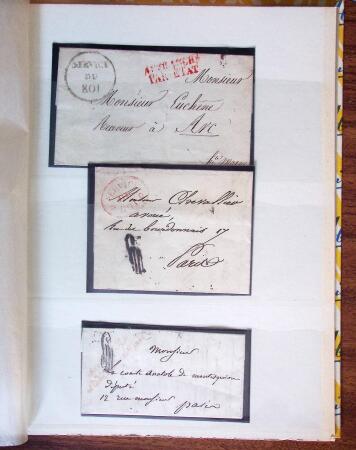 SERVICE
DU
ROI
AFFRANCHI
PAR ETAT
Monsieur
Monsieur Cuchene
Receveur à Arc
hte marne
Monsieur Chevallier
avoué,
rue des bourdonnais 17
Paris
Monsieur
le comte anatole de montesquiou
député
12 rue monsieur
paris